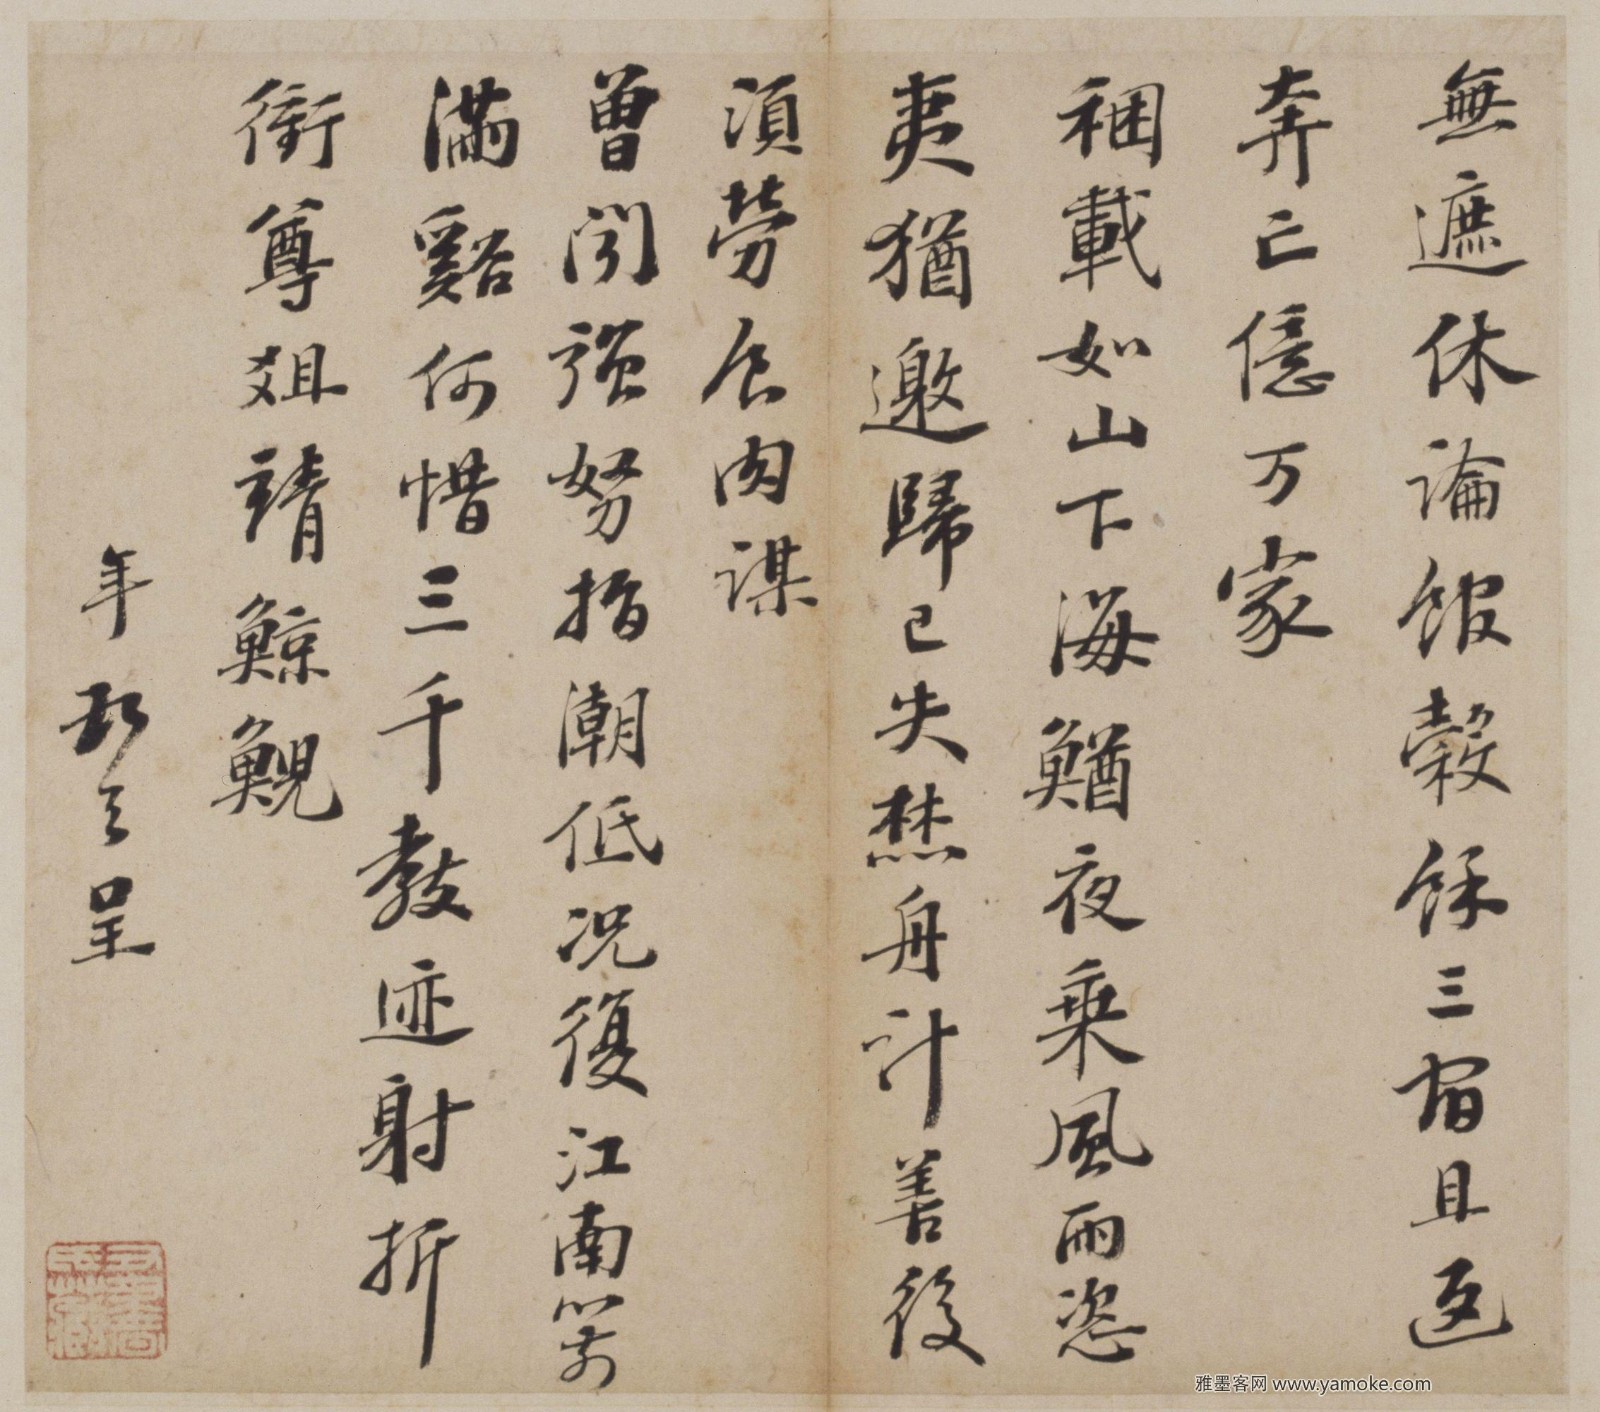 無遮休論館穀餘三宿且返
奔亡億万家
稇載如山下海鰌夜乗風雨恣
夷猶邀歸已失焚舟計善後
須勞食肉謀
曾聞強弩指潮低况復江南箭
滿谿何惜三千教迹射折
衝尊俎靖鯨鯢
年
呈
雅墨客网 www.yamoke.com